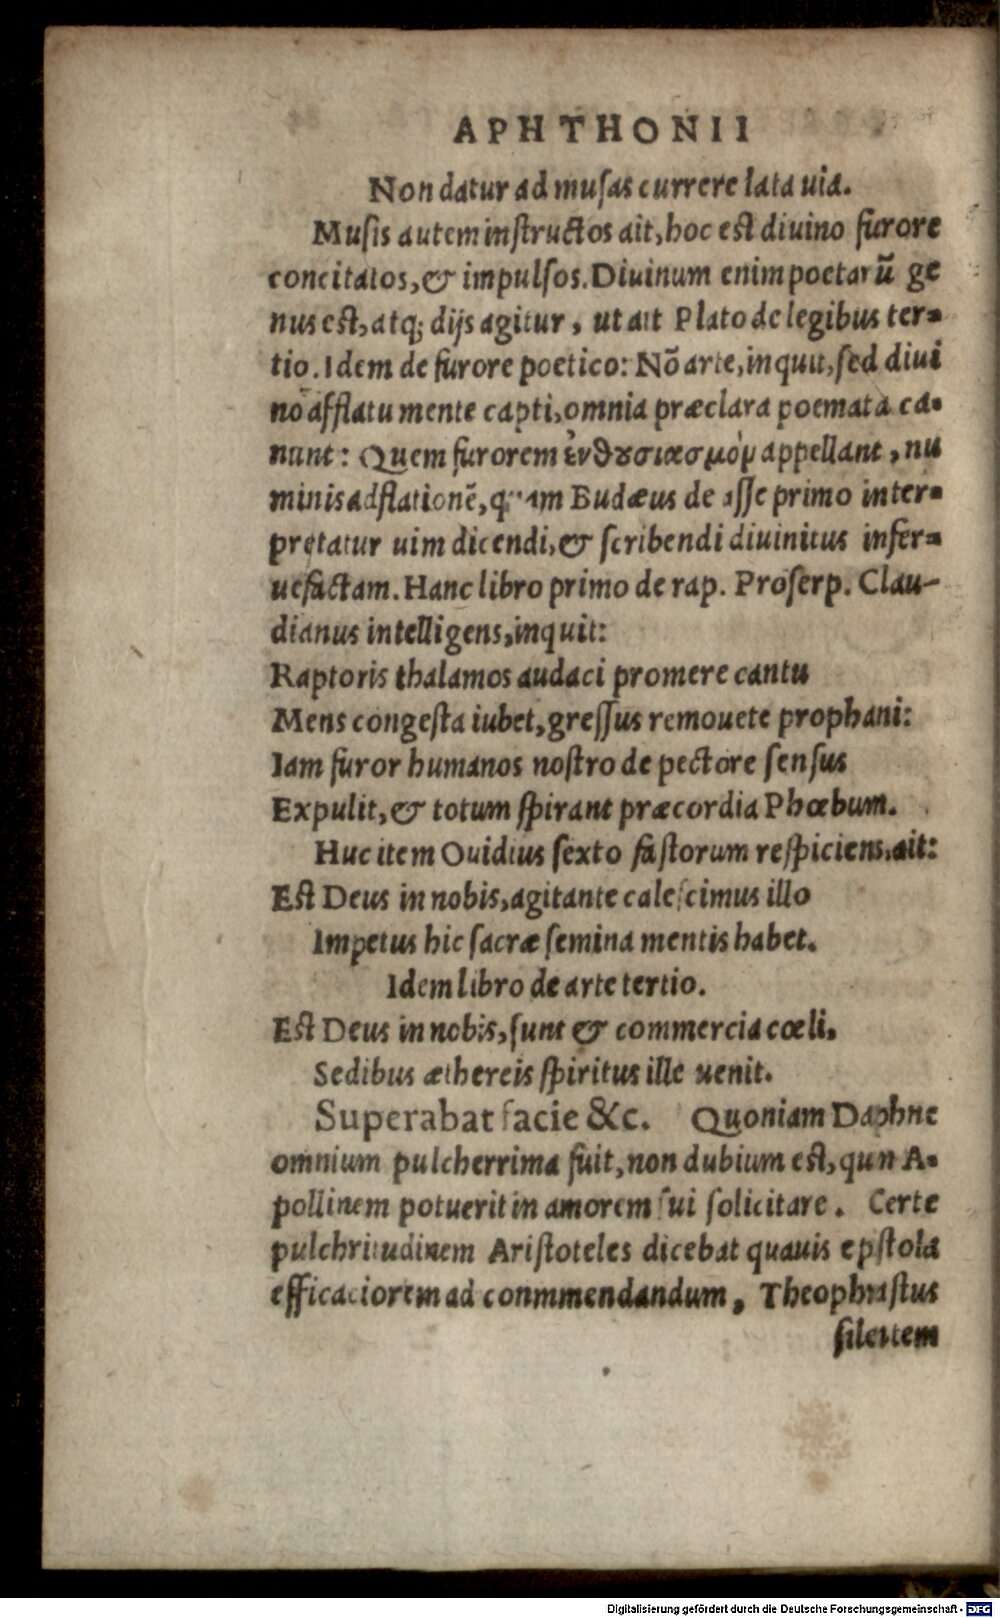 APHTHONII
Non datur ad musas currere lata uia.
Musis autem instructos ait, hoc est diuino furore
concitatos, & impulsos. Diuinum enim poetarū ge
nus est, atq; dijs agitur, ut ait Plato de legibus ter-
tio. Idem de furore poetico: Nō arte, inquit, sed diui
no afflatu mente capti, omnia præclara poemata ca-
nunt: Quem furorem ἐνθουσιασμὸν appellant, nu
minis adflationē, quam Budæus de asse primo inter-
pretatur uim dicendi, & scribendi diuinitus infer-
uefactam. Hanc libro primo de rap. Proserp. Clau-
dianus intelligens, inquit:
Raptoris thalamos audaci promere cantu
Mens congesta iubet, gressus remouete prophani:
Iam furor humanos nostro de pectore sensus
Expulit, & totum spirant præcordia Phœbum.
Huc item Ouidius sexto fastorum respiciens, ait:
Est Deus in nobis, agitante calescimus illo
Impetus hic sacræ semina mentis habet.
Idem libro de arte tertio.
Est Deus in nobis, sunt & commercia cœli,
Sedibus æthereis spiritus ille uenit.
Superabat facie &c. Quoniam Daphne
omnium pulcherrima fuit, non dubium est, quin A-
pollinem potuerit in amorem sui solicitare. Certe
pulchritudinem Aristoteles dicebat quauis epstola
efficaciorem ad conmmendandum, Theophrastus
silentem
Digitalisierung gefördert durch die Deutsche Forschungsgemeinschaft - DFG